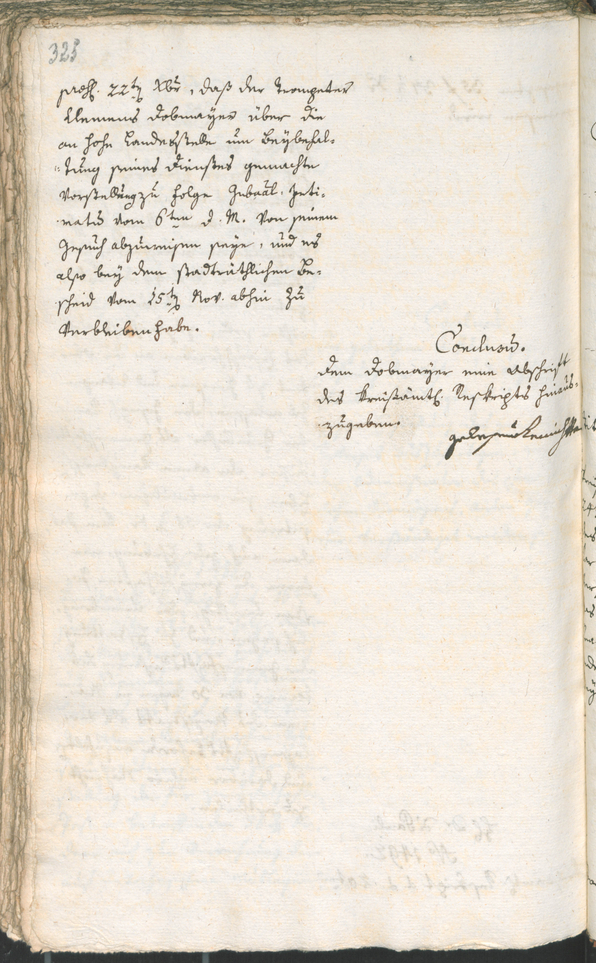 325
praes. 22ten Xbr, daß der Trompeter
Clemens Dobmayer über die
an hohe Landesstelle um Beybehal-
tung seines Dienstes gemachte
Vorstellung zu Folge Gubral. Inti-
mats vom 6ten d. M. von seinem
Gesuch abzuweisen seye, und es
also bey dem stadträthlichen Be-
scheid vom 15ten Nov. abhin zu
Verbleiben habe.
Conclusum.
Dem Dobmayer eine Abschrift
des kreisämtl. Reskripts hinaus-
zugeben.